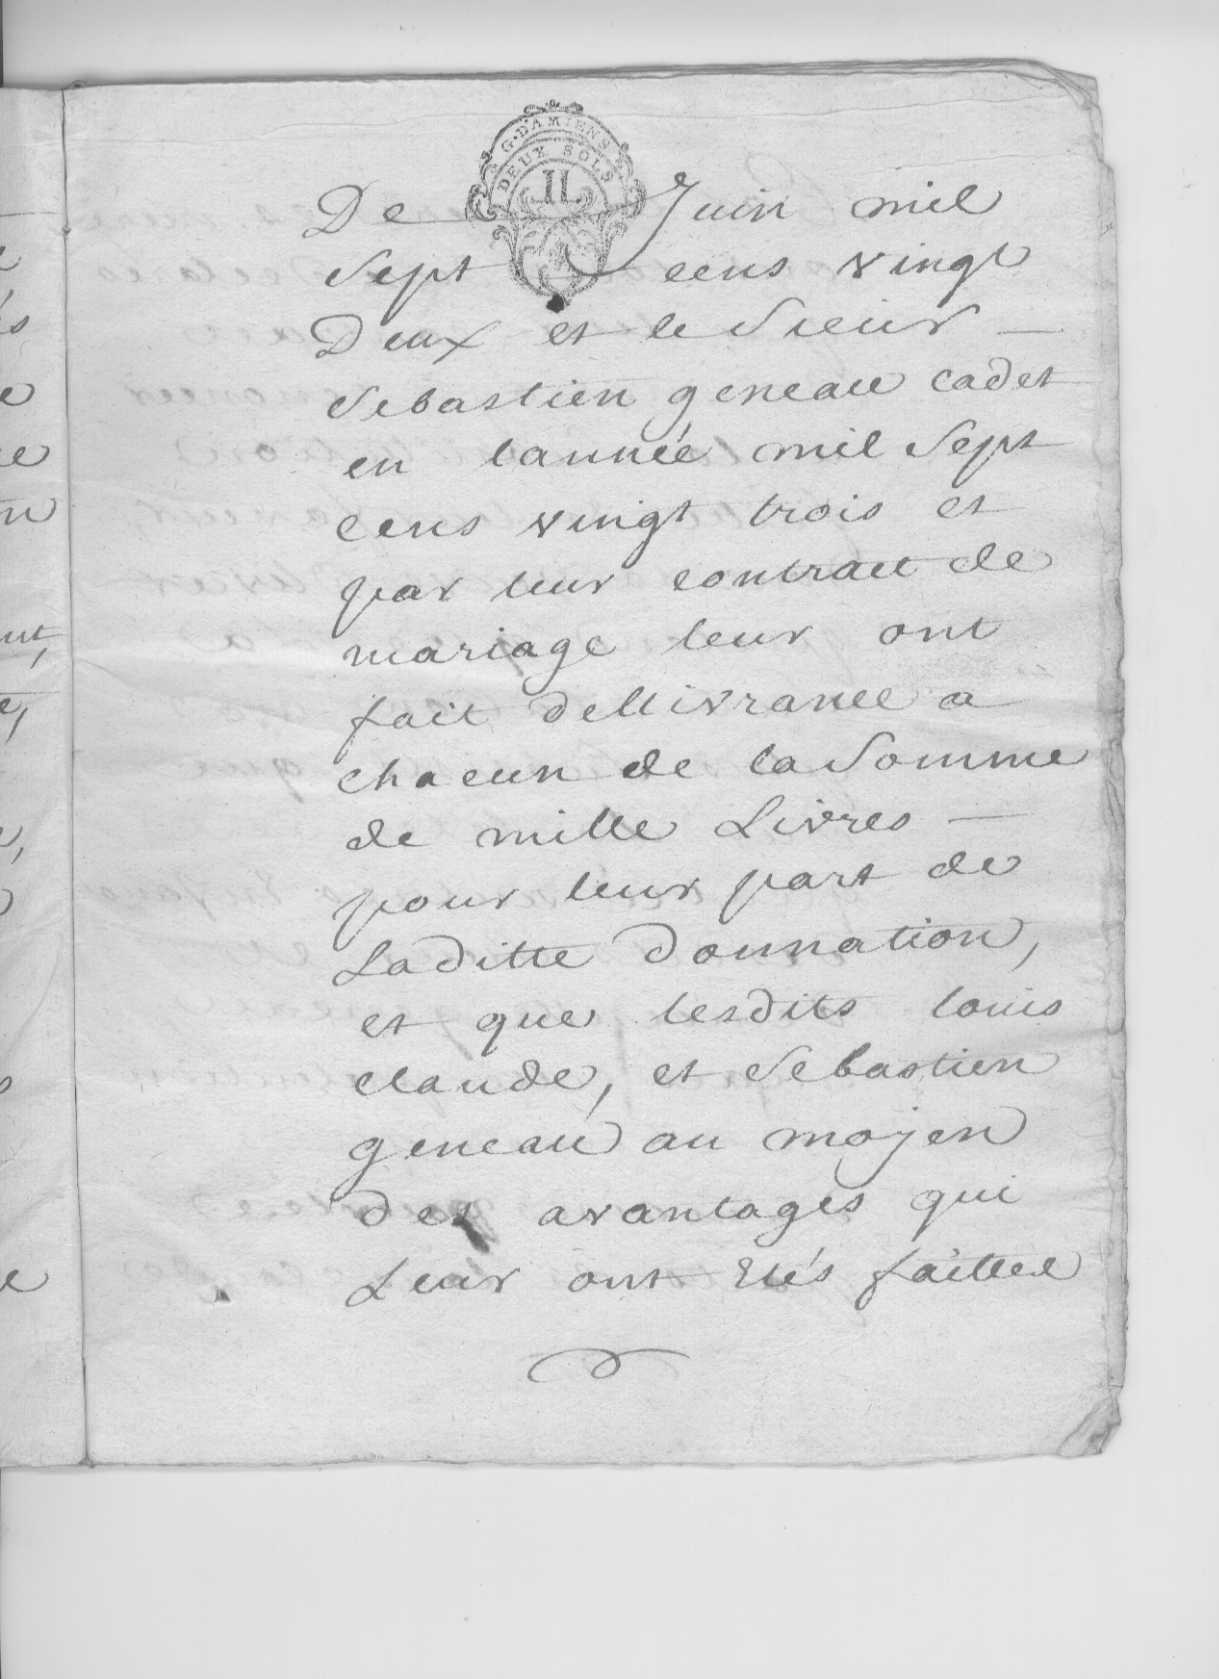 G. D'AMIENS
DEUX SOLS
II.
De Juin mil
Sept cens vingt
Deux et le Sieur —
Sebastien geneau cadet
en lannée mil Sept
cens vingt trois et
par leur contract de
mariage leur ont
fait dellivrance a
chacun de la Somme
de mille Livres —
pour leur part de
Laditte donnation,
et que lesdits louis
claude, et Sebastien
geneau au moyen
des avantages qui
Leur ont Etés faittes